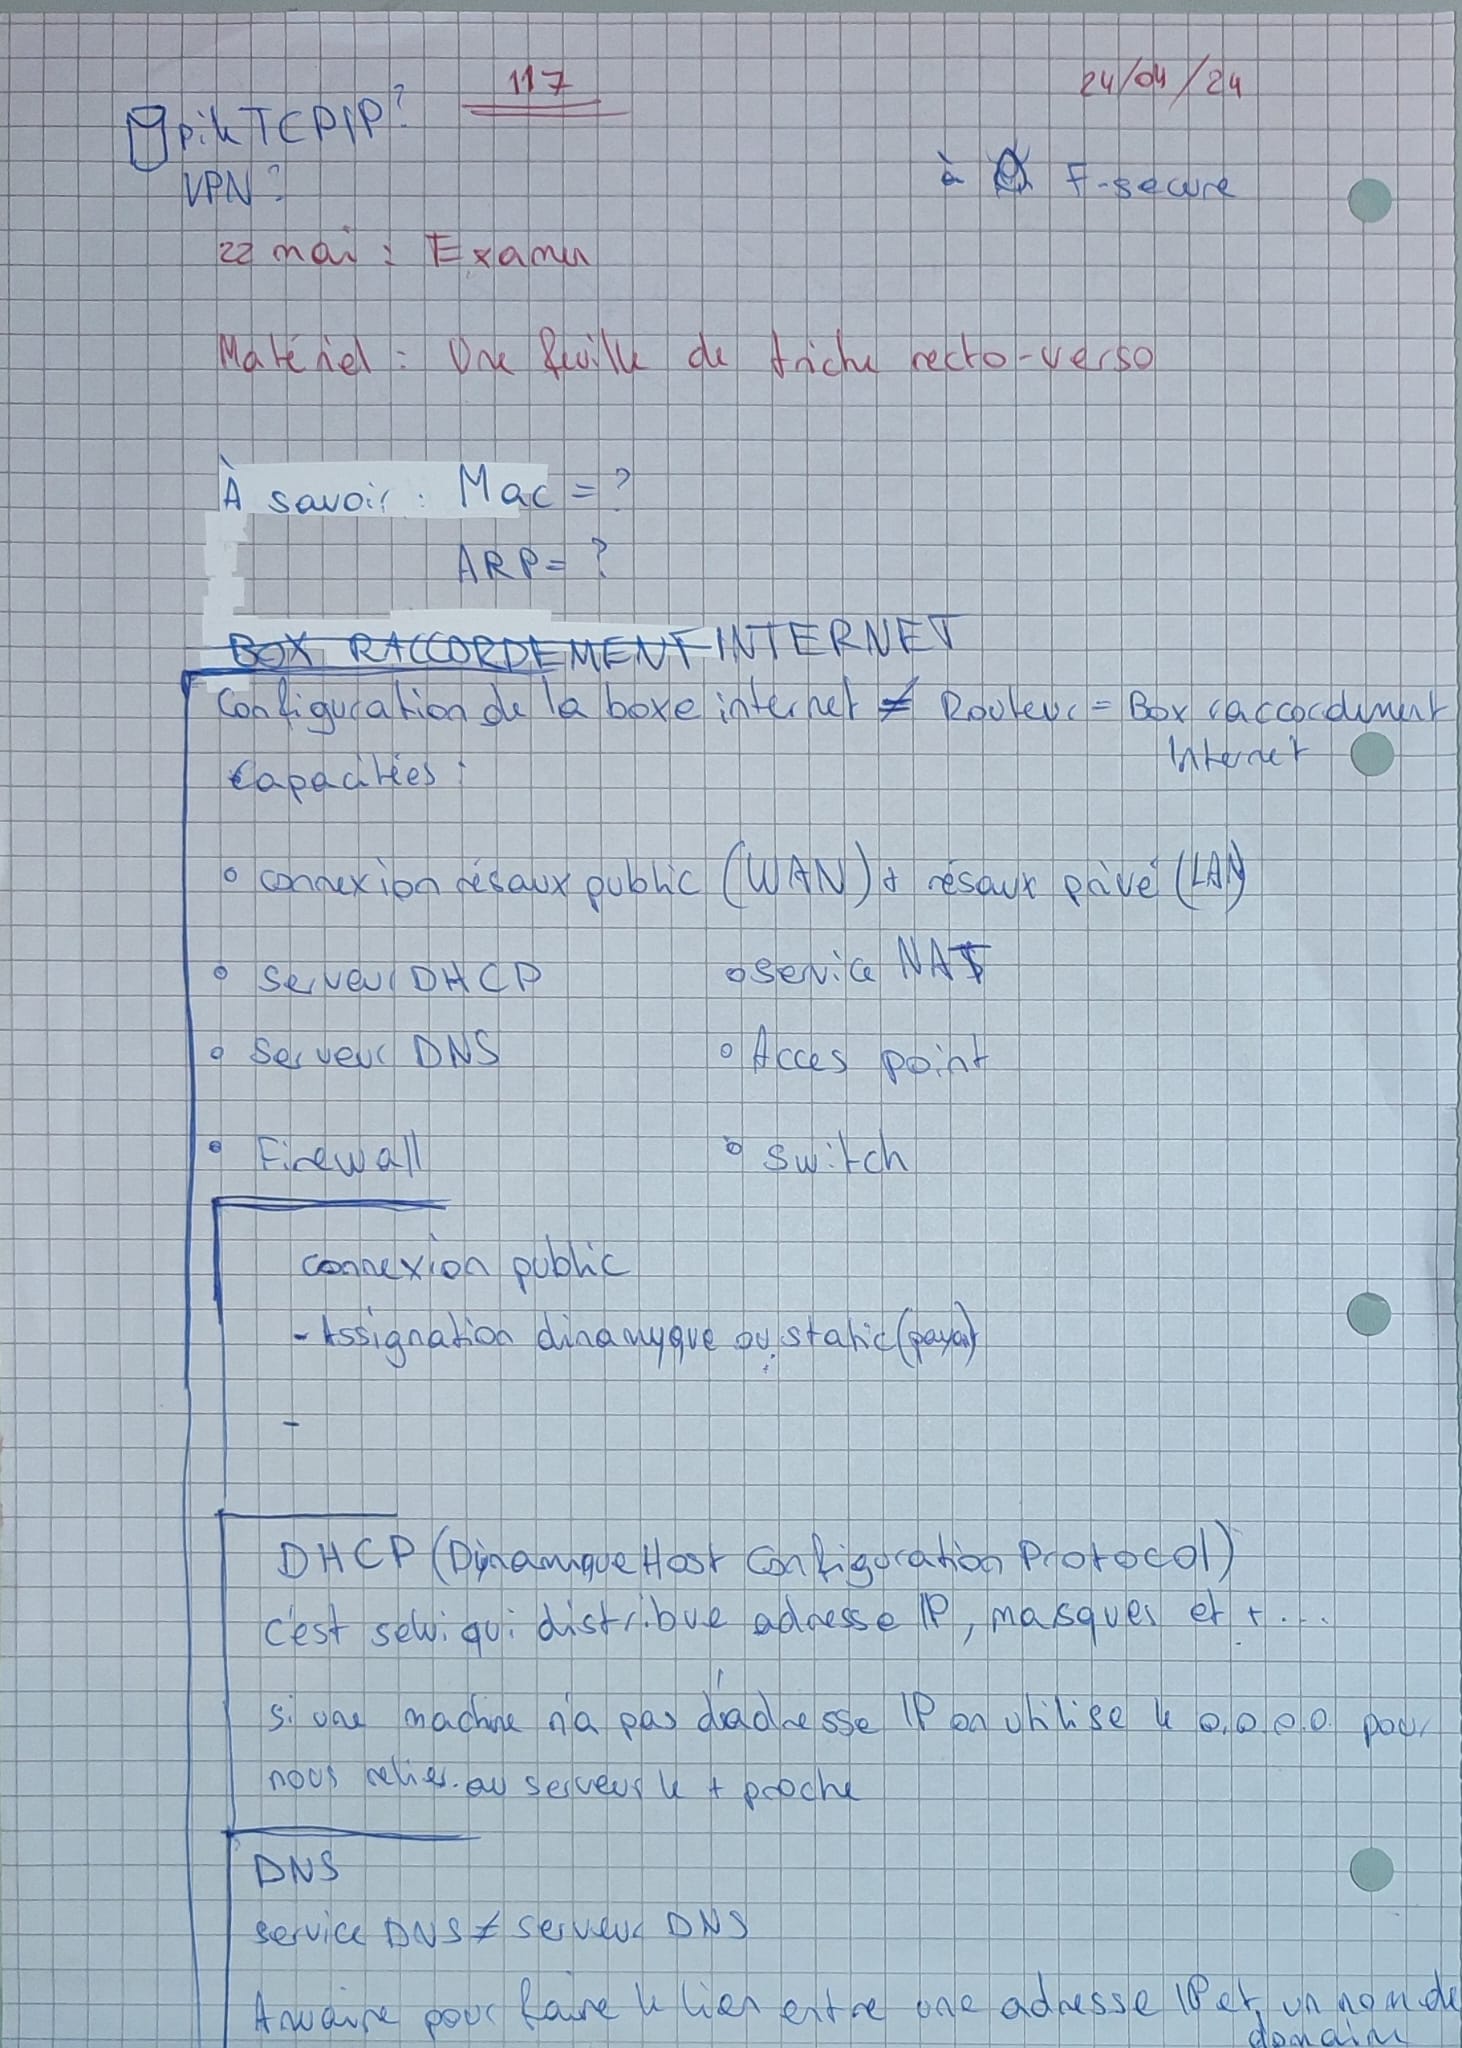 117
24/04/24
pile TCP/IP?
VPN?
à F-secure
22 mai : Examen
Matériel : Une feuille de triche recto-verso
À savoir : Mac = ?
ARP = ?
BOX RACCORDEMENT INTERNET
Configuration de la boxe internet ≠ Routeur = Box raccordement
Internet
Capacitées :
° connexion résaux public (WAN) + résaux privé (LAN)
° Serveur DHCP
° Service NAT
° Serveur DNS
° Acces point
° Firewall
° Switch
connexion public
- Assignation dinamyque ou static (payant)
-
DHCP (Dynamique Host Configuration Protocol)
c'est selui qui distribue adresse IP, masques et + ...
si une machine n'a pas d'adresse IP on utilise le 0.0.0.0 pour
nous relier au serveur le + proche
DNS
service DNS ≠ serveur DNS
Anuaire pour faire le lien entre une adresse IP et un nom de
domaine